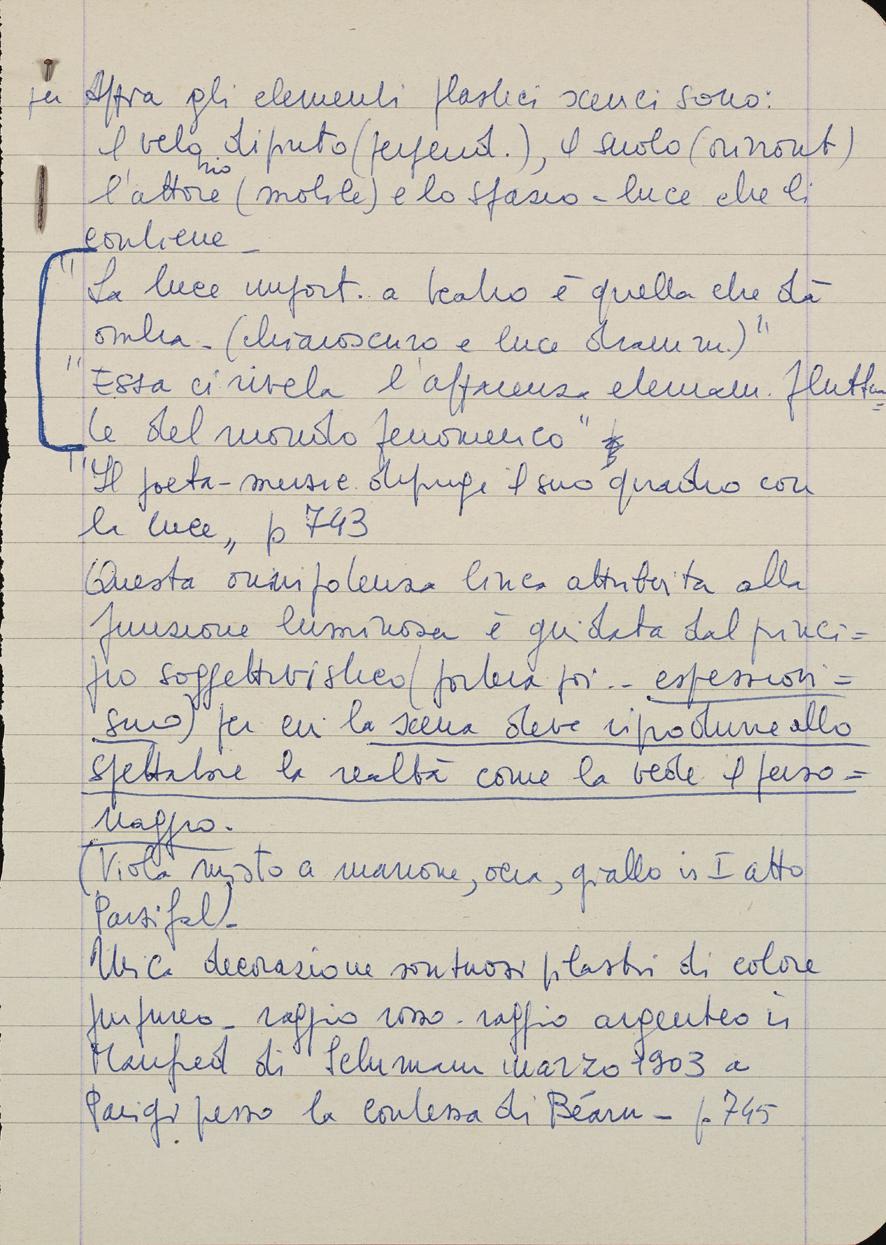 per Appia gli elementi plastici scenici sono:
il velario dipinto (perpend.), il suolo (orizzont)
l'attore (mobile) e lo spazio - luce che li
contiene -
"La luce import. a teatro è quella che dà
ombra - (chiaroscuro e luce dramm.)"
"Essa ci rivela l'apparenza elemen. fluttuan=
te del mondo fenomenico"
"Il poeta-music. dipinge il suo quadro con
la luce„ p 743
Questa onnipotenza lirica attribuita alla
funzione luminosa è guidata dal princi=
pio soggettivistico (porterà poi .. espressioni=
smo) per cui la scena deve riprodurre allo
spettatore la realtà come la vede il perso=
naggio.
(Viola misto a marrone, ocra, giallo in I atto
Parsifal) -
Unica decorazione sontuosi pilastri di colore
purpureo - raggio rosso - raggio argenteo in
Manfred di Schumann marzo 1903 a
Parigi presso la contessa di Béarn - p. 745